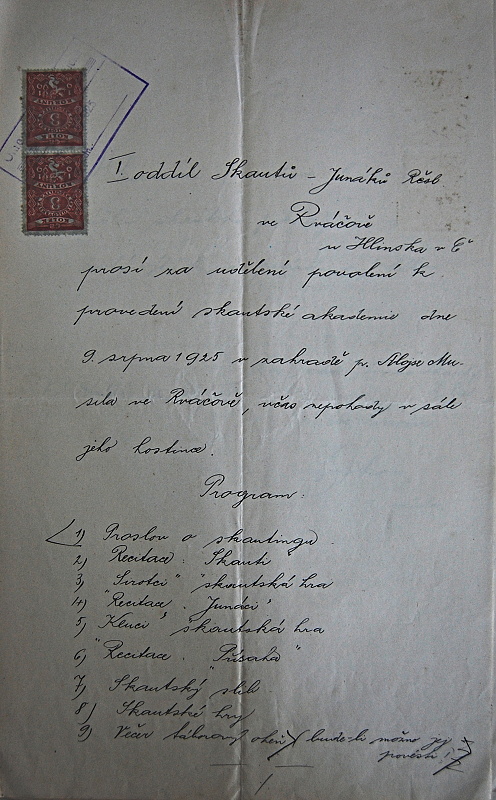 I. oddíl Skautů – Junáků Rčsl
ve Rváčově
u Hlinska v Č
prosí za udělení povolení k
provedení skautské akademie dne
9. srpna 1925 v zahradě p. Aloise Mu-
sila ve Rváčově, včas nepohody v sále
jeho hostince.
Program:
1) Proslov o skautingu.
2) Recitace: Skauti
3) "Sirotci" skautská hra
4) Recitace: "Junáci"
5) "Kluci" skautská hra
6) Recitace: "Přísaha"
7) Skautský slib.
8) Skautské hry
9) Večer táborový oheň bude-li možno jej
pověsti